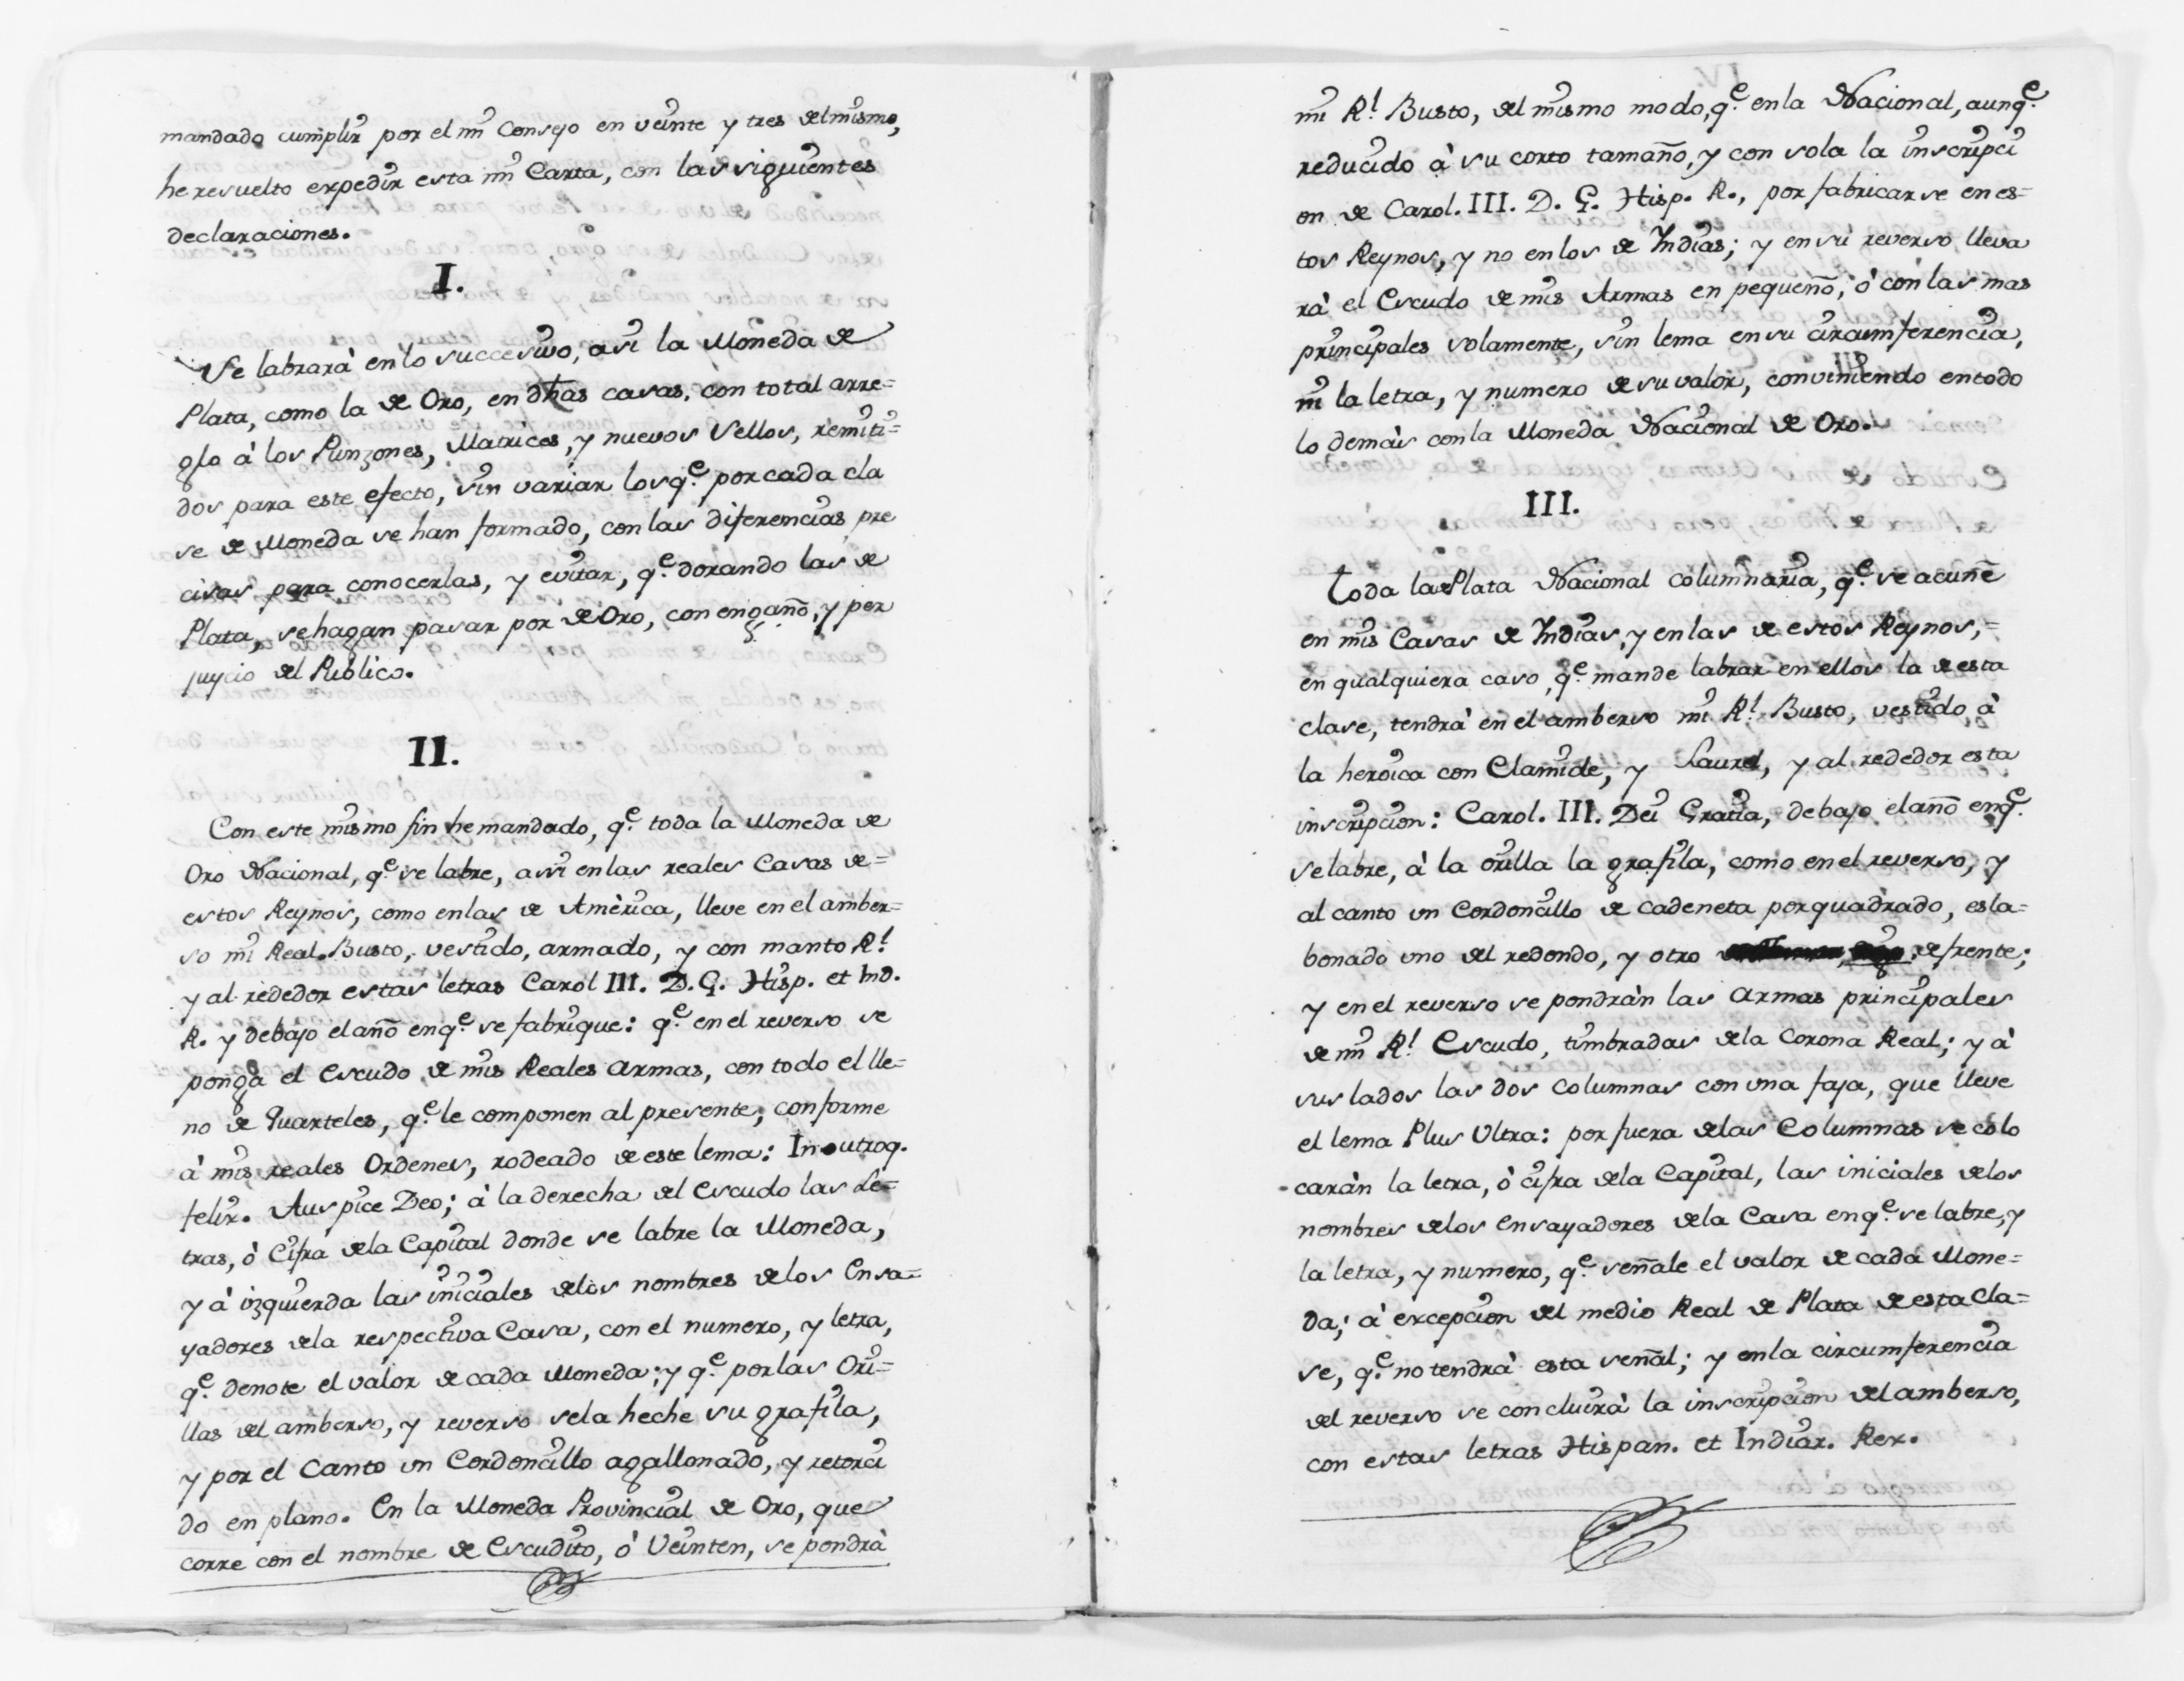 mandado cumplir por el mi Consejo en veinte y tres del mismo,
he resuelto expedir esta mi Carta, con las siguientes
declaraciones.
I.
Se labrará en lo successivo, asi la Moneda de
Plata, como la de Oro, en dhas casas, con total arre=
glo à los Punzones, Matrices, y nuevos Sellos, remiti=
dos para este efecto, sin variar los q.e por cada cla
se de Moneda se han formado, con las diferencias pre
cisas para conocerlas, y evitar, q.e dorando las de
Plata, se hagan pasar por de Oro, con engaño, y per
juycio del Publico.
II.
Con este mismo fin he mandado, q.e toda la Moneda de
Oro Nacional, q.e se labre, assi en las reales Casas de=
estos Reynos, como en las de Amèrica, lleve en el amber=
so mi Real Busto, vestido, armado, y con manto R.l
y al rededor estas letras Carol III. D. G. Hisp. et Ind.
R. y debajo el año en q.e se fabrique: q.e en el reverso se
ponga el Escudo de mis Reales Armas, con todo el lle=
no de Quarteles, q.e le componen al presente, conforme
à mis reales Ordenes, rodeado de este lema: In utroq.
felix. Auspice Deo; à la derecha del Escudo las Le=
tras, ò Cifra de la Capital donde se labre la Moneda,
y à izquierda las iniciales de los nombres de los Ensa=
yadores de la respectiva Casa, con el numero, y letra,
q.e denote el valor de cada Moneda; y q.e por las Ori=
llas del amberso, y reverso se la heche su grafila,
y por el Canto un Cordoncillo agallonado, y retorci
do en plano. En la Moneda Provincial de Oro, que
corre con el nombre de Escudito, ó Veinten, se pondrà
mi R.l Busto, del mismo modo, q.e en la Nacional, aunq.e
reducido à su corto tamaño, y con sola la inscripci
on de Carol. III. D. G. Hisp. R., por fabricarse en es=
tos Reynos, y no en los de Indias; y en su reverso lleva
rà el Escudo de mis Armas en pequeño, ó con las mas
principales solamente, sin lema en su circumferencia,
ni la letra, y numero de su valor, conviniendo en todo
lo demàs con la Moneda Nacional de Oro.
III.
Toda la Plata Nacional columnaria, q.e se acuñe
en mis Casas de Indias, y en las de estos Reynos,=
en qualquiera caso, q.e mande labrar en ellos la de esta
clase, tendrà en el amberso mi R.l Busto, vestido à
la heroica con Clamide, y Laurel, y al rededor esta
inscripcion: Carol. III. Dei Gratia, debajo el año en q.e
se labre, à la orilla la grafila, como en el reverso, y
al canto un Cordoncillo de cadeneta por quadrado, esla=
bonado uno del redondo, y otro de frente;
y en el reverso se pondràn las Armas principales
de mi R.l Escudo, timbradas de la Corona Real; y à
sus lados las dos Columnas con una faja, que lleve
el lema Plus Ultra: por fuera de las Columnas se colo
caràn la letra, ò cifra de la Capital, las iniciales de los
nombres de los Ensayadores de la Casa en q.e se labre, y
la letra, y numero, q.e señale el valor de cada Mone=
da; à excepcion del medio Real de Plata de esta Cla=
se, q.e no tendrà esta señal; y en la circumferencia
del reverso se concluirà la inscripcion del amberso,
con estas letras Hispan. et Indiar. Rex.